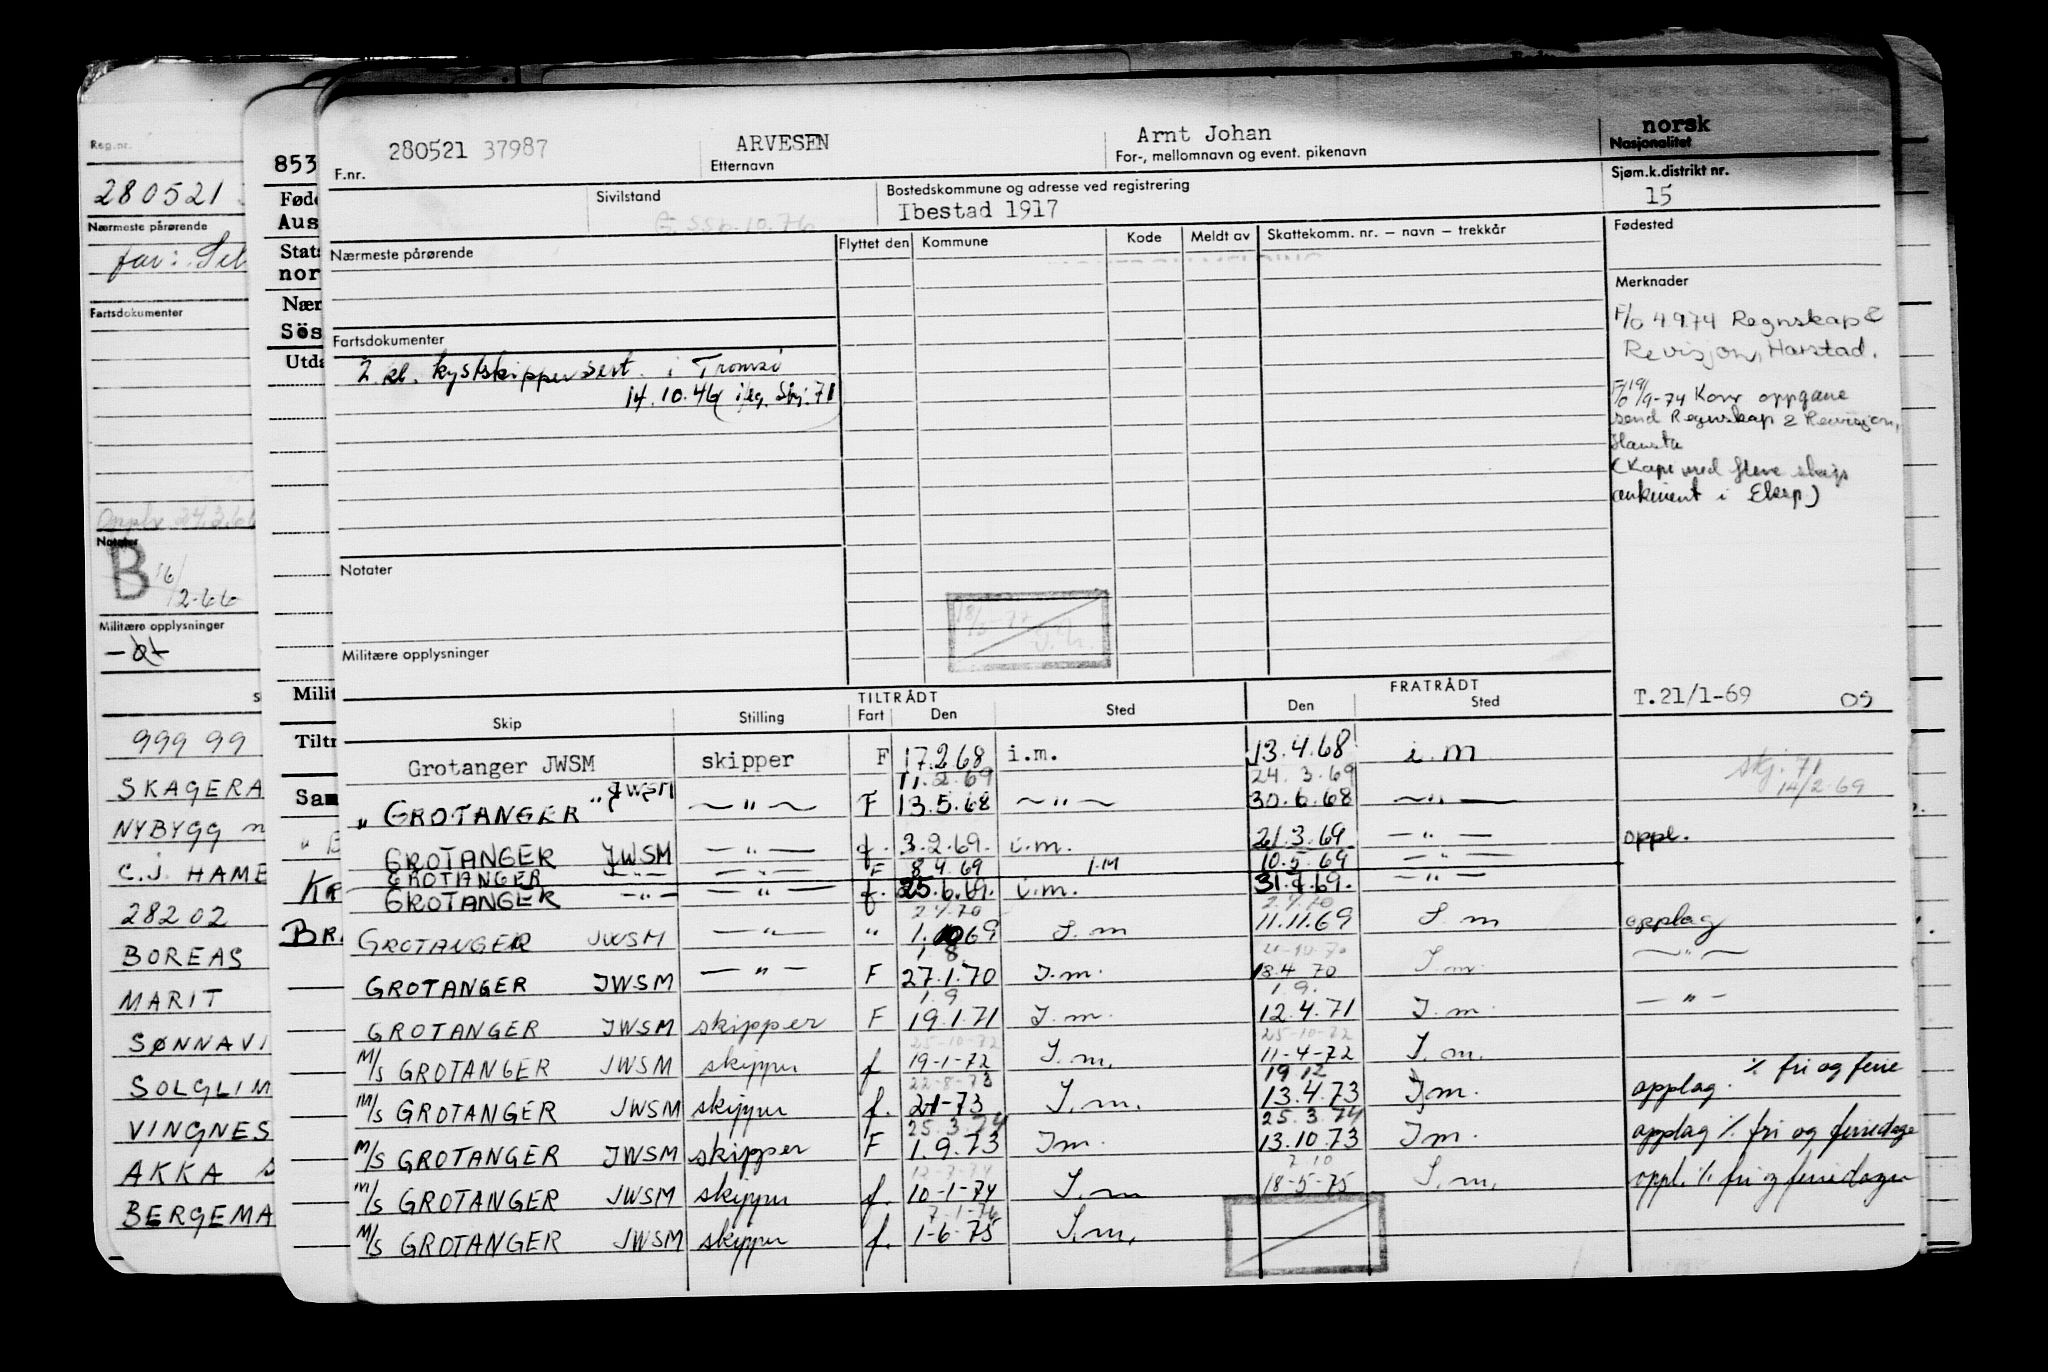 Reg.nr.
280521
Nærmeste pårørende
far:
Fartsdokumenter
Notater
B 16/2-66
Militære opplysninger
999 99
SKAGERA
NYBYGG
C.J. HAME
28202
BOREAS
MARIT
SØNNAVI
SOLGLIM
VINGNES
AKKA
BERGEMA
853
Føde
Aus
Stats
nor
Nær
Sös
Utda
Milit
Tiltr
Sam
BRA
280521 37987 ARVESEN Arnt Johan norsk
F.nr. Etternavn For-, mellomnavn og event. pikenavn Nasjonalitet
Sivilstand Bostedskommune og adresse ved registrering Sjøm.k.distrikt nr.
Ibestad 1917 15
Nærmeste pårørende Flyttet den Kommune Kode Meldt av Skattekomm. nr. — navn — trekkår Fødested
Merknader
F/O 4.9.74 Regnskap &
Revisjon, Harstad.
Fartsdokumenter
2 kl. kystskippersert. i Tromsø
14.10.46
19/9-74 Korr oppgave
send Regnskap & Revisjon,
Notater
Militære opplysninger
T.21/1-69 05
TILTRÅDT FRATRÅDT
Skip Stilling Fart Den Sted Den Sted
Grotanger JWSM skipper F 17.2.68 i.m. 13.4.68 i.m
11.2.69 24.3.69
skj. 71
14/2.69
" GROTANGER " JWSM — " — F 13.5.68 — " — 30.6.68 — " —
GROTANGER JWSM — " — f. 3.2.69. i.m. 21.3.69 — " — oppl.
GROTANGER — " — — " — F 8.4.69 I.M 10.5.69 — " —
GROTANGER — " — — " — f. 25.6.69. i.m. 31.8.69. — " —
GROTANGER JWSM — " — " 1.10.69 I.m 11.11.69 I.m opplag
GROTANGER JWSM — " — F 27.1.70 I.m. 18.4.70 I.m. — " —
1.9 1.9.
GROTANGER JWSM skipper F 19.1.71 I.m. 12.4.71 I.m. — " —
25-10-72 25-10-72
M/S GROTANGER JWSM skipper f 19-1-72 I.m. 11-4-72 I.m.
22-8-73 19 12
M/S GROTANGER JWSM skipper f. 2-1-73 I.m. 13.4.73 I.m. opplag. % fri og ferie
25.3.74 25.3.74
M/S GROTANGER JWSM skipper F 1.9.73 I.m. 13.10.73 I.m. opplag % fri og feriedage
7.10
M/S GROTANGER JWSM skipper f. 10-1-74 I.m 18-5-75 I.m. oppl. % fri og feriedager
7-1-76
M/S GROTANGER JWSM skipper f. 1-6-75 I.m.